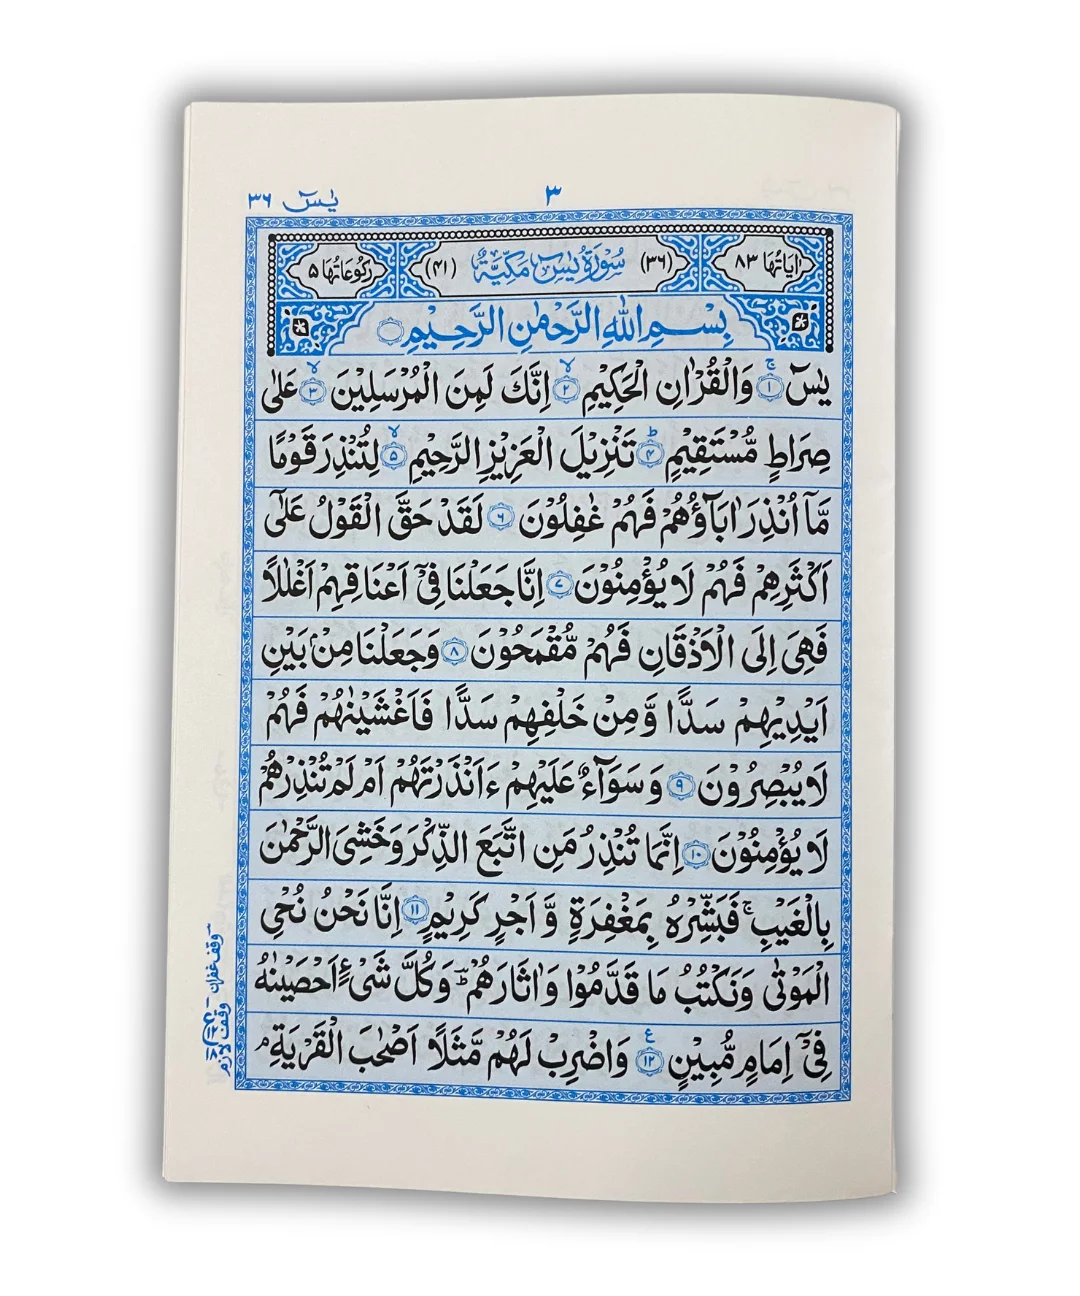 یٰسٓ ٣٦
٣
اٰیَاتُهَا ٨٣ (٣٦) سُوْرَةُ یٰسٓ مَكِّیَّةٌ (٤١) رُكُوْعَاتُهَا ٥
بِسْمِ اللّٰهِ الرَّحْمٰنِ الرَّحِیْمِ
یٰسٓ ۚ ١ وَالْقُرْاٰنِ الْحَكِیْمِ ۙ ٢ اِنَّكَ لَمِنَ الْمُرْسَلِیْنَ ۙ ٣ عَلٰی
صِرَاطٍ مُّسْتَقِیْمٍ ؕ ٤ تَنْزِیْلَ الْعَزِیْزِ الرَّحِیْمِ ۙ ٥ لِتُنْذِرَ قَوْمًا
مَّاۤ اُنْذِرَ اٰبَآؤُهُمْ فَهُمْ غٰفِلُوْنَ ٦ لَقَدْ حَقَّ الْقَوْلُ عَلٰۤی
اَكْثَرِهِمْ فَهُمْ لَا یُؤْمِنُوْنَ ٧ اِنَّا جَعَلْنَا فِیْۤ اَعْنَاقِهِمْ اَغْلٰلًا
فَهِیَ اِلَی الْاَذْقَانِ فَهُمْ مُّقْمَحُوْنَ ٨ وَجَعَلْنَا مِنْۢ بَیْنِ
اَیْدِیْهِمْ سَدًّا وَّمِنْ خَلْفِهِمْ سَدًّا فَاَغْشَیْنٰهُمْ فَهُمْ
لَا یُبْصِرُوْنَ ٩ وَسَوَآءٌ عَلَیْهِمْ ءَاَنْذَرْتَهُمْ اَمْ لَمْ تُنْذِرْهُمْ
لَا یُؤْمِنُوْنَ ١٠ اِنَّمَا تُنْذِرُ مَنِ اتَّبَعَ الذِّكْرَ وَخَشِیَ الرَّحْمٰنَ
بِالْغَیْبِ ۚ فَبَشِّرْهُ بِمَغْفِرَةٍ وَّاَجْرٍ كَرِیْمٍ ١١ اِنَّا نَحْنُ نُحْیِ
الْمَوْتٰی وَنَكْتُبُ مَا قَدَّمُوْا وَاٰثَارَهُمْ ؔؕ وَكُلَّ شَیْءٍ اَحْصَیْنٰهُ
فِیْۤ اِمَامٍ مُّبِیْنٍ ١٢ ع وَاضْرِبْ لَهُمْ مَّثَلًا اَصْحٰبَ الْقَرْیَةِ ۘ
وقف غفران
وقف لازم